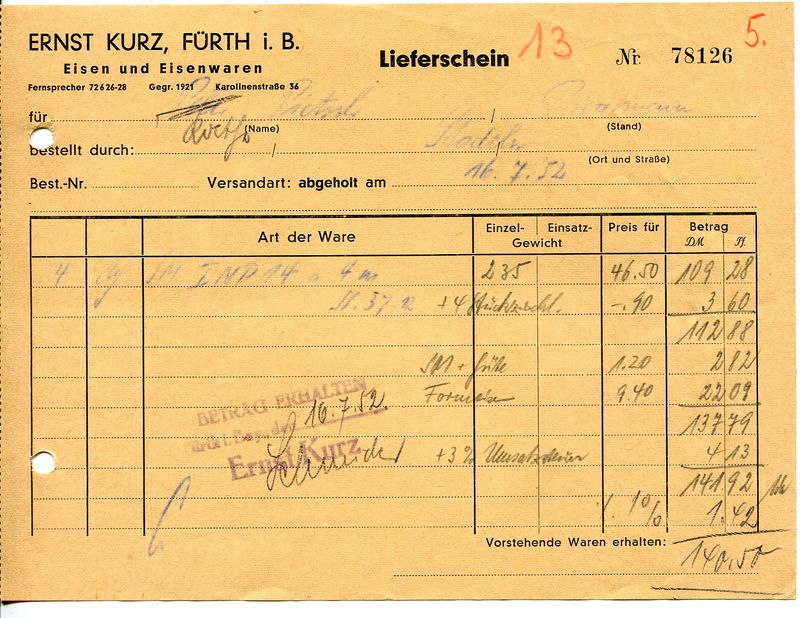 ERNST KURZ, FÜRTH i. B.
Eisen und Eisenwaren
Fernsprecher 72626-28 Gegr. 1921 Karolinenstraße 36
Lieferschein 13 Nr. 78126 5.
für
(Name) / (Stand)
bestellt durch: / /
(Ort und Straße)
Best.-Nr. Versandart: abgeholt am 16.7.52
Art der Ware Einzel- Einsatz- Gewicht Preis für Betrag
DM Pf.
4 INP 14 a 4 m 235 46.50 109 28
St. 37.12 +4 -.90 3 60
112 88
SM + Güte 1.20 2 82
9.40 22 09
137 79
+3% Umsatzsteuer 4 13
141 92
1% 1.42
140.50
BETRAG ERHALTEN
16.7.52
Ernst Kurz
Schneider
Vorstehende Waren erhalten: